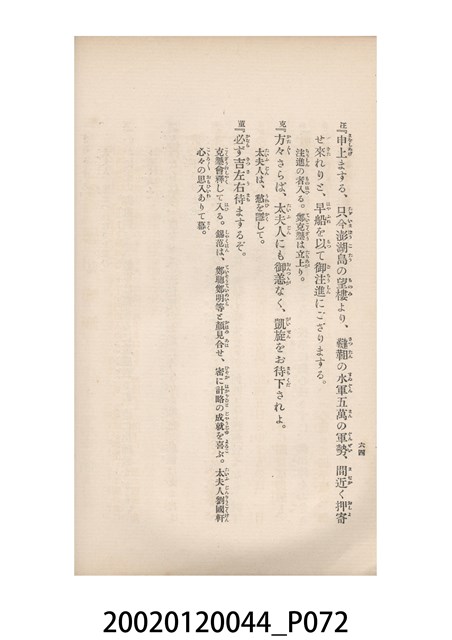 六四
注『申上まする、只今澎湖島の望樓より、韃靼の水軍五萬の軍勢、間近く押寄
せ來れりと、早船を以て御注進にござりまする。
注進の者入る。鄭克塽は立上り。
克『方々さらば、太夫人にも御恙なく、凱旋をお待下されよ。
太夫人は、愁を隱して。
董『必ず吉左右待まするぞ。
克塽會釋して入る。錫范は、鄭聰鄭明等と顏見合せ、密に計略の成就を喜ぶ。太夫人劉國軒
心々の思入ありて幕。
20020120044_P072